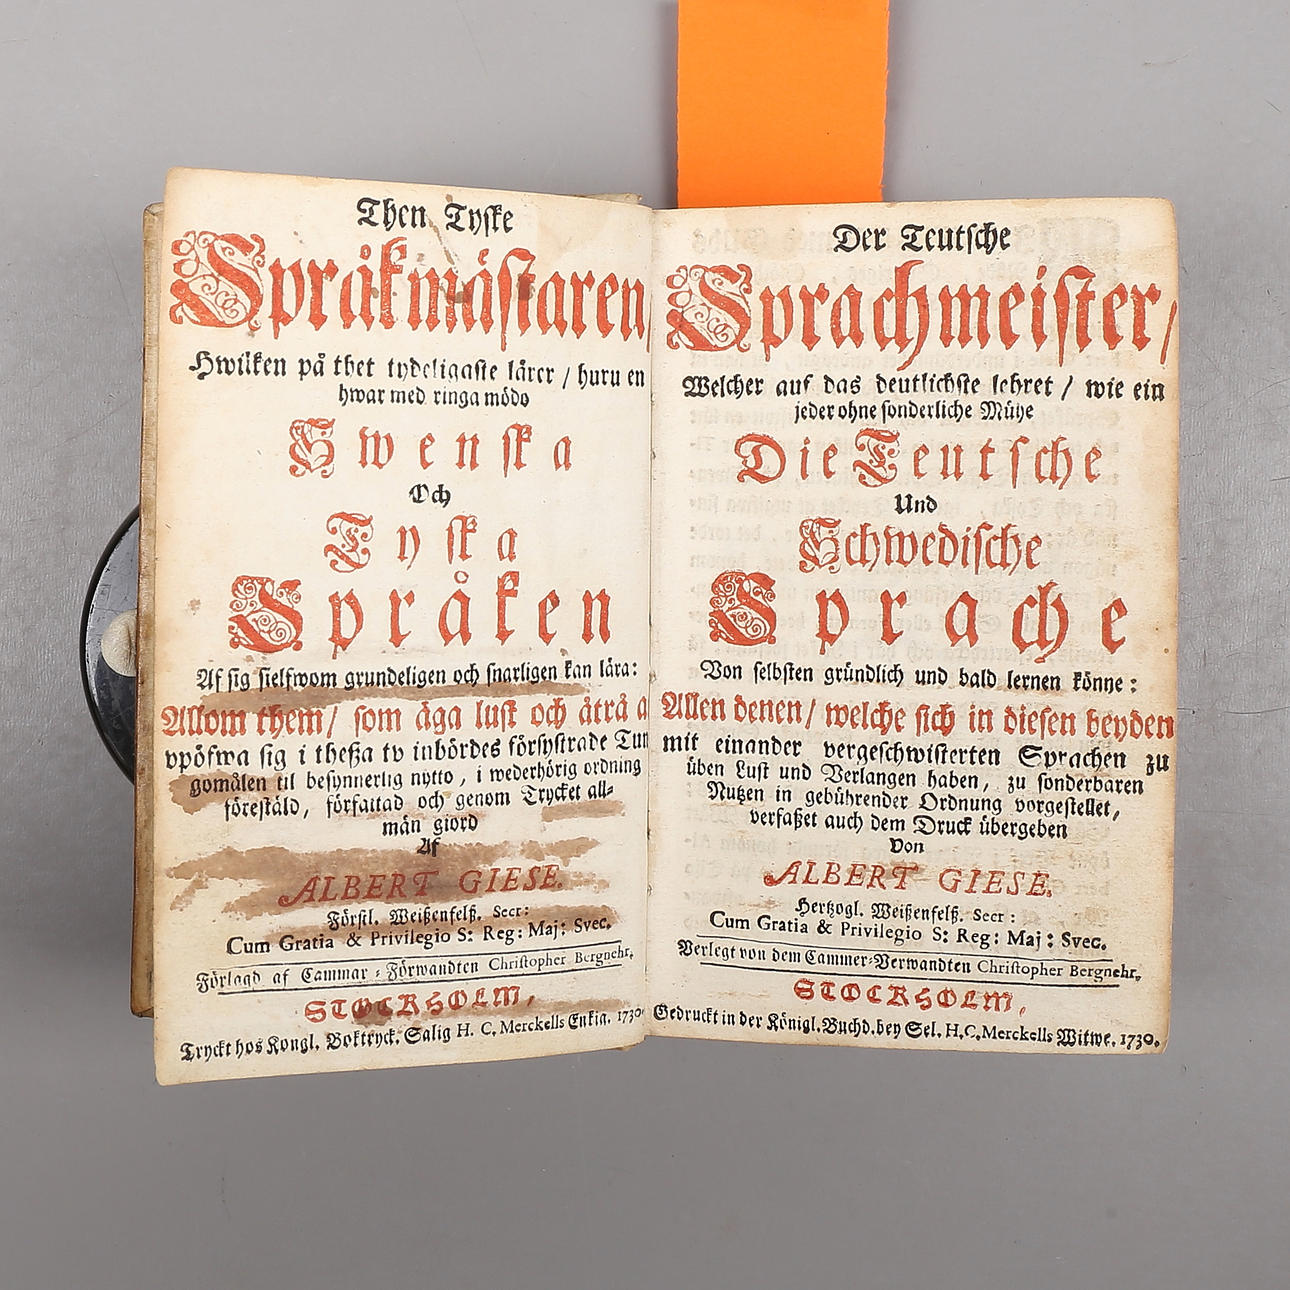 Then Tyske
Språkmästaren
Hwilken på thet tydeligaste lärer / huru en
hwar med ringa mödo
Swenska
Och
Tyska
Språken
Af sig sielfwom grundeligen och snarligen kan lära:
Allom them / som äga lust och åtrå
vpöfwa sig i theßa tv inbördes försystrade Tun
gomålen til besynnerlig nytto, i wederhörig ordning
förestäld, författad och genom Trycket all-
män giord
Af
ALBERT GIESE.
Förstl. Weißenfelß. Secr:
Cum Gratia & Privilegio S: Reg: Maj: Svec.
Förlagd af Cammar-Förwandten Christopher Bergnehr.
STOCKHOLM,
Tryckt hos Kongl. Boktryck. Salig H. C. Merckells Enkia. 1730
Der Teutsche
Sprachmeister /
Welcher auf das deutlichste lehret / wie ein
jeder ohne sonderliche Mühe
Die Teutsche
Und
Schwedische
Sprache
Von selbsten gründlich und bald lernen könne:
Allen denen / welche sich in diesen beyden
mit einander vergeschwisterten Sprachen zu
üben Lust und Verlangen haben, zu sonderbaren
Nutzen in gebührender Ordnung vorgestellet,
verfaßet auch dem Druck übergeben
Von
ALBERT GIESE.
Hertzogl. Weißenfelß. Secr:
Cum Gratia & Privilegio S: Reg: Maj: Svec.
Verlegt von dem Cammer-Verwandten Christopher Bergnehr.
STOCKHOLM,
Gedruckt in der Königl. Buchd. bey Sel. H. C. Merckells Witwe. 1730.